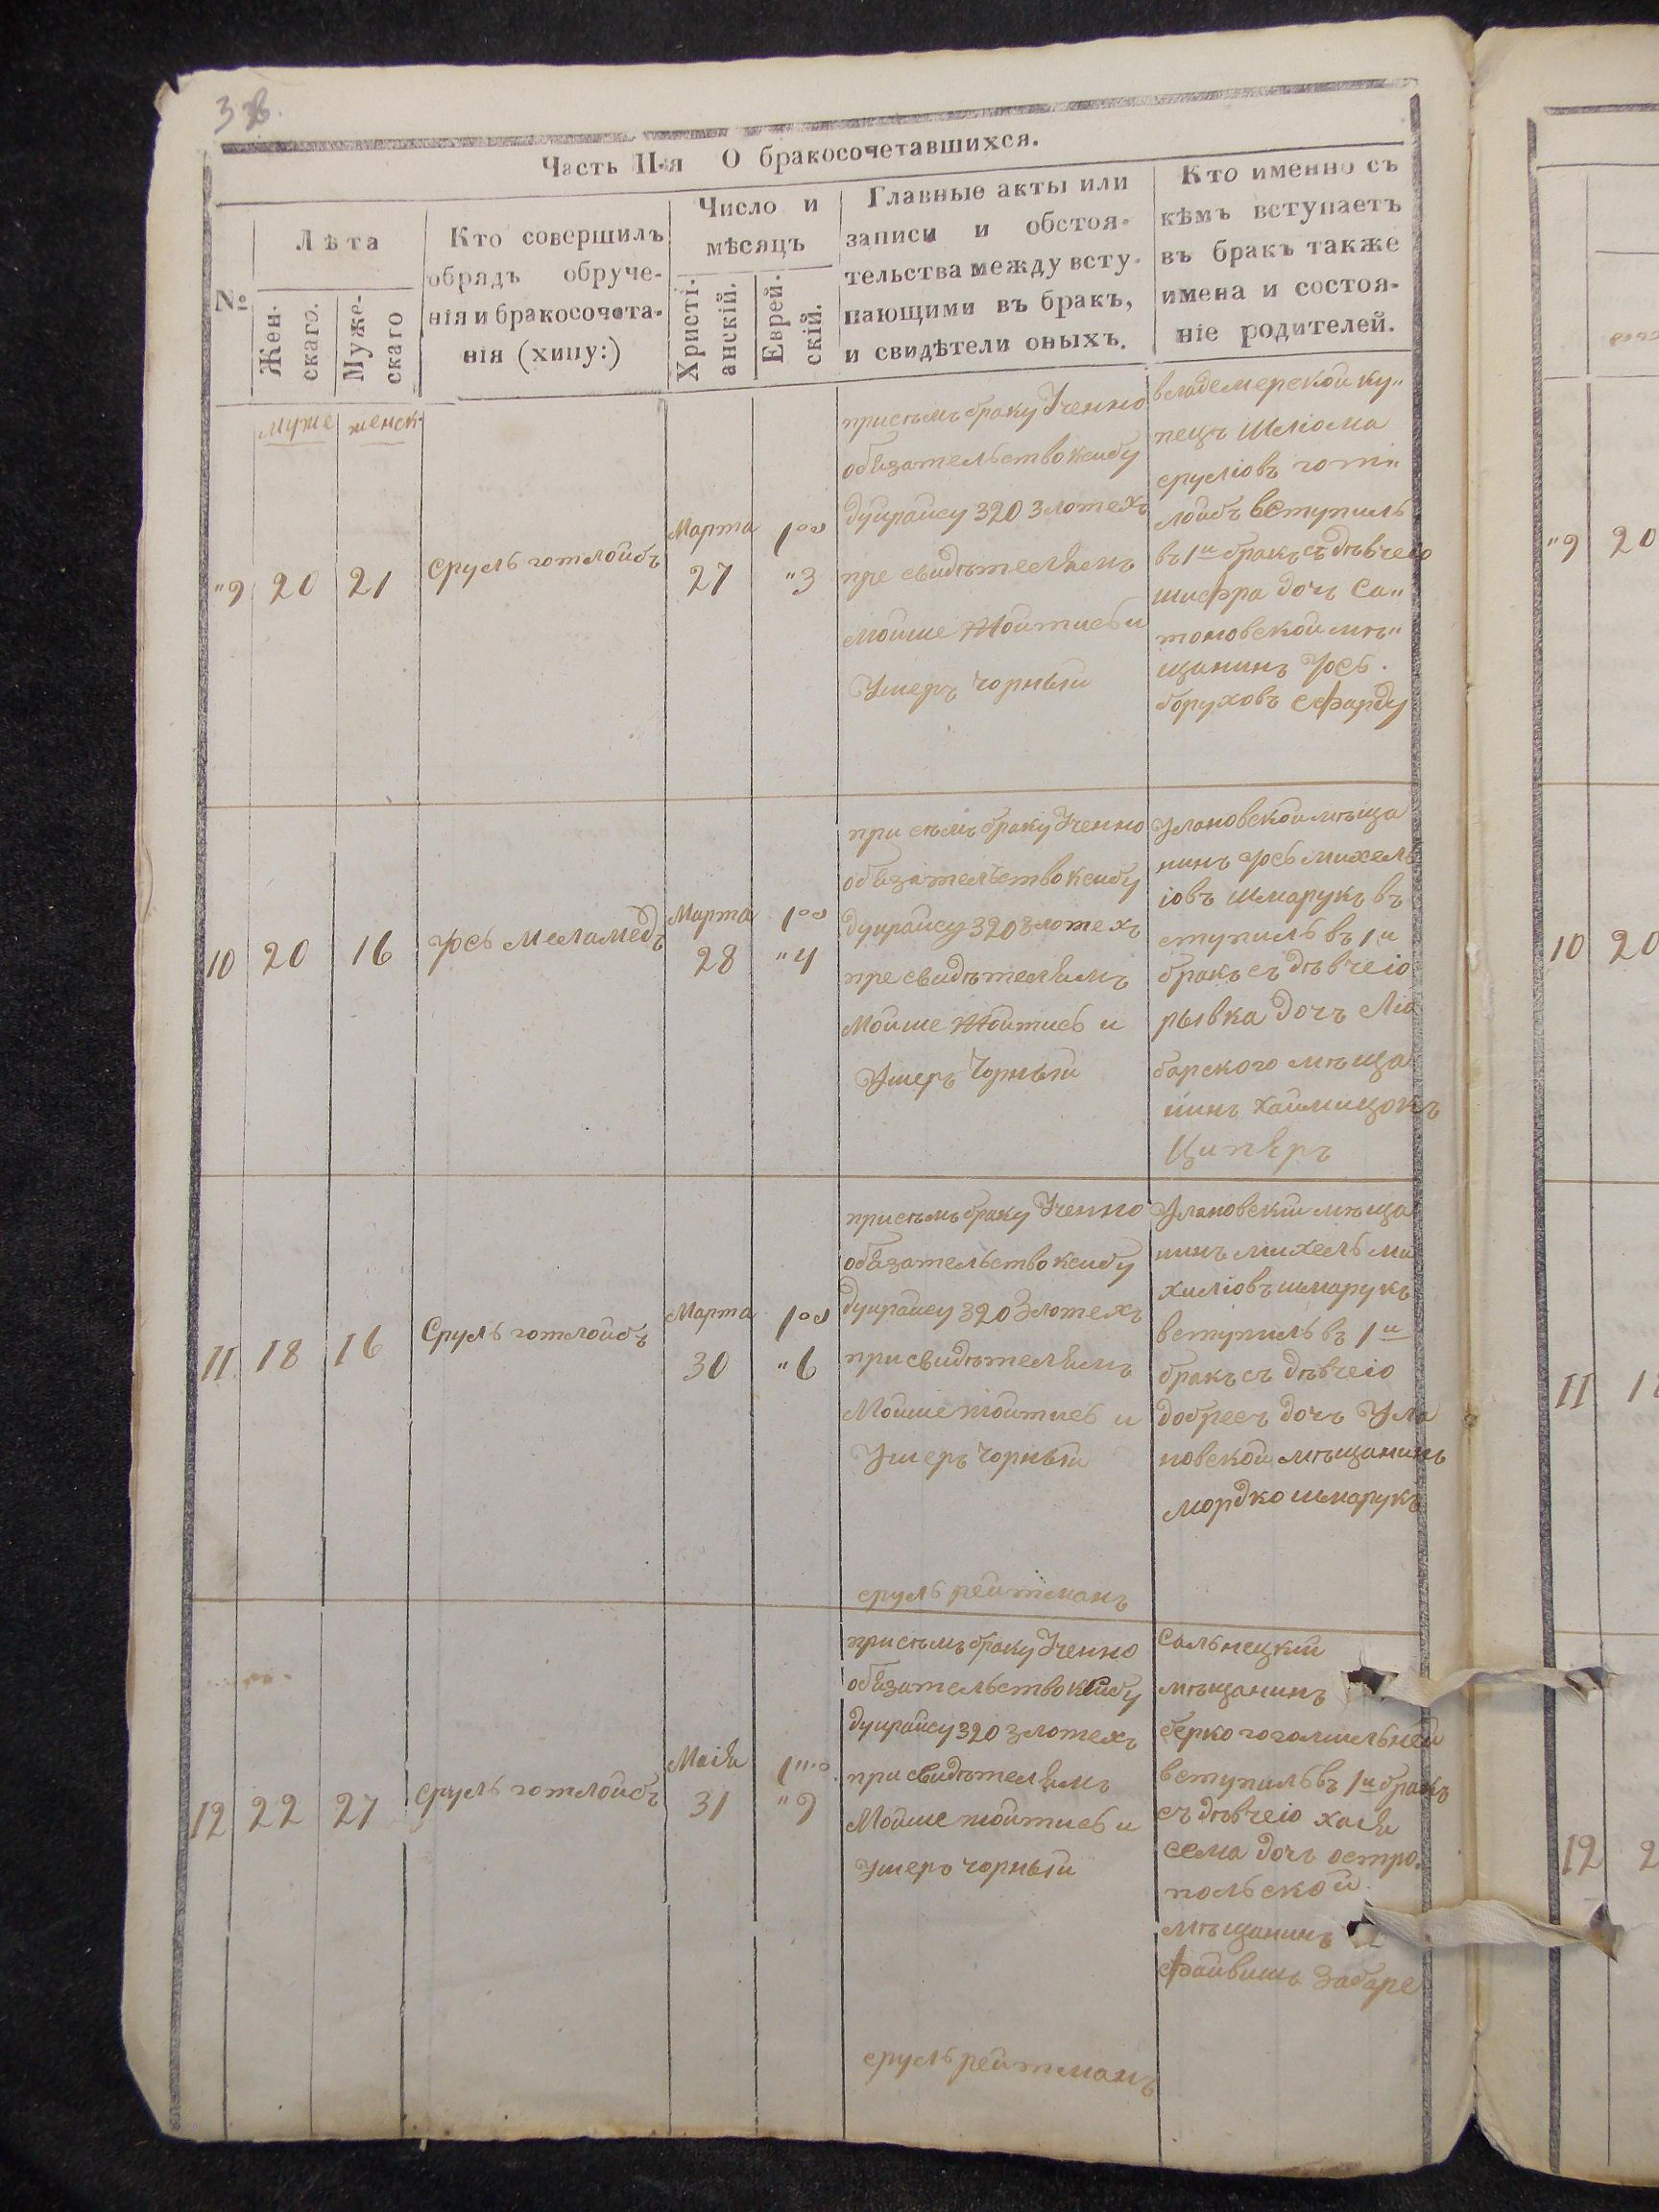 Часть II-я О бракосочетавшихся.
№
Лѣта
Жен-
скаго.
Муже-
скаго
Кто совершилъ
обрядъ обруче-
нія и бракосочета-
нія (хипу:)
Число и
мѣсяцъ
Христі-
анскій.
Еврей-
скій.
Главные акты или
записи и обстоя-
тельства между всту-
пающими въ бракъ,
и свидѣтели оныхъ.
Кто именно съ
кѣмъ вступаетъ
въ бракъ также
имена и состоя-
ніе родителей.
муже женск
"9 20 21
Сруль готлойбъ
Марта
27
"3
присемъ браку Ученно
обязательство ксибу
дуирайсу 320 злотехъ
пре свидѣтелямъ
Мойше Тойтисъ и
Ушеръ чорный
владемерской ку"
пецъ Шліома
сруліовъ гот"
лойбъ вступилъ
въ 1й бракъ съ дѣвчею
шифра дочъ Са"
тановской мѣ"
щанинъ Йось
боруховъ
10 20 16
Йось Меламедъ
Марта
28
"4
при семъ браку Ученно
обязательство ксибу
дуирайсу 320 злотехъ
пре свидѣтелямъ
Мойше Тойтисъ и
Ушеръ Чорный
Улановской мѣща
нинъ Йось михель
іовъ шмарукъ въ
ступилъ въ 1й
бракъ съ дѣвчею
рывка дочъ Лю
барского мѣща
нинъ хаимицокъ
Циперъ
11 18 16
Сруль готлойбъ
Марта
30
"6
присемъ браку Ученно
обязательство ксибу
дуирайсу 320 злотехъ
при свидѣтелямъ
Мойше тойтисъ и
Ушеръ чорный
сруль рейтманъ
Улановскій мѣща
нинъ михель ми
хиліовъ шмарукъ
вступилъ въ 1й
бракъ съ дѣвчею
добресъ дочъ Ула
новской мѣщанинъ
мордко шмарукъ
12 22 27
сруль готлойбъ
Маія
31
"9
присемъ браку Ученно
обязательство ксибу
дуирайсу 320 злотехъ
при свидѣтелямъ
Мойше тойтисъ и
Ушеръ чорный
сруль рейтманъ
Сальнецкій
мѣщанинъ
берко
вступилъ въ 1й бракъ
съ дѣвчею хая
сема дочъ остро
польской
мѣщанинъ
файвишъ Забаре
"9 20
10 20
11 1
12 2